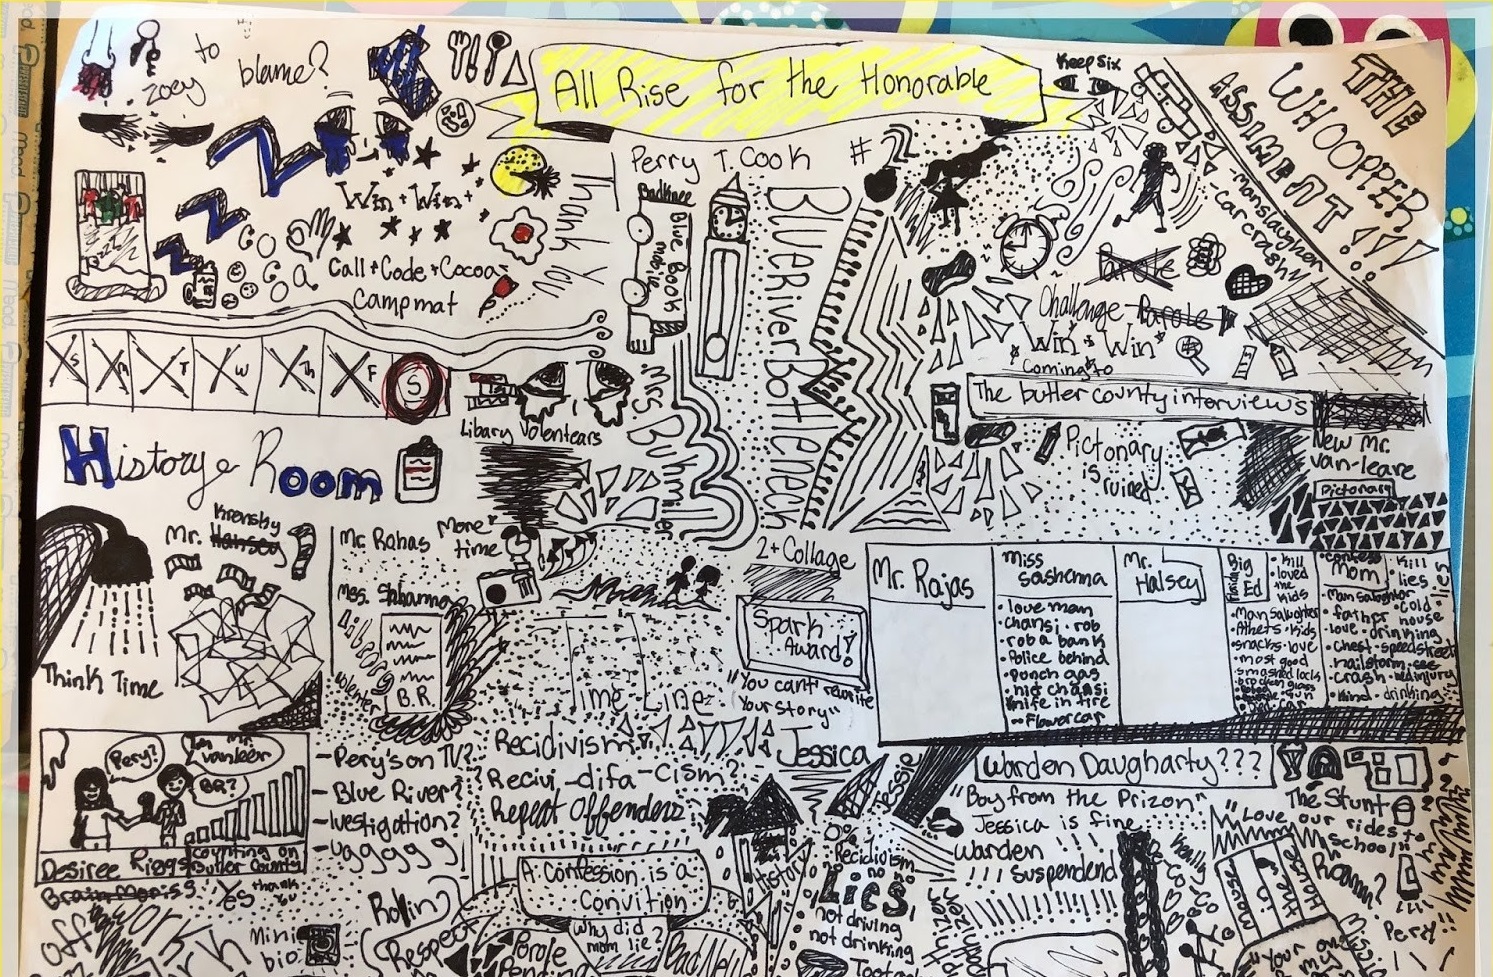 Zoey to blame?
All Rise for the Honorable
Perry T. Cook #2
Keep Six
THE
WHOOPPER
ASSIMENT!!
-Manslaughton
-car crash
Win + Win +
Call + Code + Cocoa
Campmat
COCOa
Thank You
Badknee
Blue Books
mobile
BLUERiverBottleneck
Parole
Challenge Parole
Win + Win
Coming to
The butler county interviews
Pictonary
is
ruined
New Mr.
van-leare
Pictonary
S M T W Th F S
Libary Volentears
Mrs Buhmier
History Room
Mr. Krensby
Halsey
Think Time
Mr. Rahas
More time
B.R.
Time Line
2+ Collage
Spark
Award!
"You cant rewrite
Your Story"
Mr. Rajas
Miss
Sashenna
• love man
chansi • rob
• rob a bank
• Police behind
• Punch gas
• hit chansi
knife in tire
• Flower car
Mr.
Halsey
Big
Ed
• Kill
loved
the
kids
• Man Salughter
• Athers • kids
• snacks • love
• most good
Mom
• Kill
lies
• Man Salughter
• father • cold house
• love • drinking
• chest • speed street
• hailstorm • see
• crash • red injury
• kind • drinking
lies
Pery?
I'm Mr.
vanleer
BR?
Desiree Riggs
Counting on
Butler County
Yes thank u
- Pery's on TV?
- Blue River?
- Ivestigation?
- uggggg
Recidivism
Recivi - difa - Cism?
Repeat Offenders
Jessica
Jessip
Warden Daugharty???
"Boy from the Prizon"
Jessica is fine
Warden
!!! Suspendend
0% Recidivism
no no
Lies
not driving
not drinking
History
A: Confession is a
Convition
Why did
mom lie?
Bad New
Parole
Pending
Respect
Rolin
Mini
bio
off
Work
"Love
House
the
me
House
The Stunt
our rides to
school"
Roamn?
Perry
"Your on